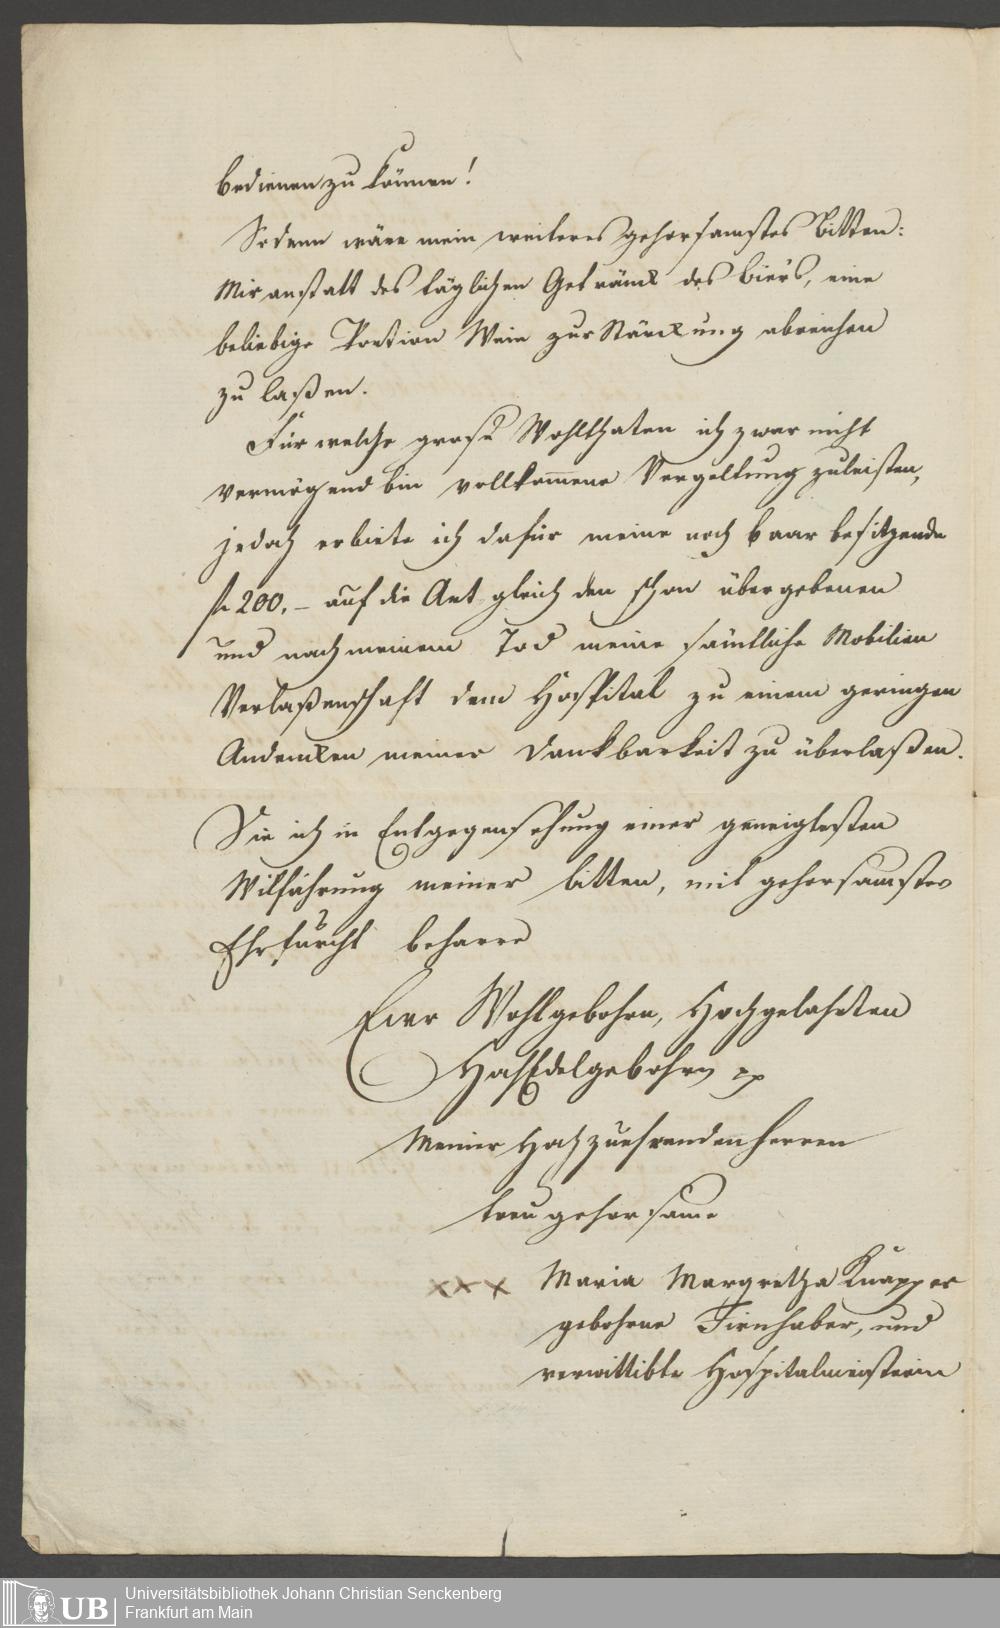 bedienen zu können!
Sodenn wäre mein weiteres gehorsamstes Bitten:
Mir anstatt des täglichen Getränck des Biers, eine
beliebige Portion Wein zur Stärckung abreichen
zu laßen.
Für welche große Wohlthaten ich zwar nicht
vermögend bin vollkom̅ene Vergeltung zuleisten,
jedoch erbiete ich dafür meine noch baar besitzende
fl 200.- auf die Art gleich den schon übergebenen
und nach meinem Tod meine sämtliche Mobilien
Verlaßenschaft dem Hospital zu einem geringen
Andencken meiner Dankbarkeit zu überlaßen.
Die ich in Entgegensehung einer geneigtesten
Wilfahrung meiner bitten, mit gehorsamster
Ehrfurcht beharre
Euer Wohlgebohrn, Hochgelahrten
HochEdelgebohrn pp
Meiner Hochzuehrenden Herren
treu gehorsame
xxx Maria Margretha Knapper
gebohrne Firnhaber, und
verwittibte Hospitalmeisterin
UB Universitätsbibliothek Johann Christian Senckenberg
Frankfurt am Main